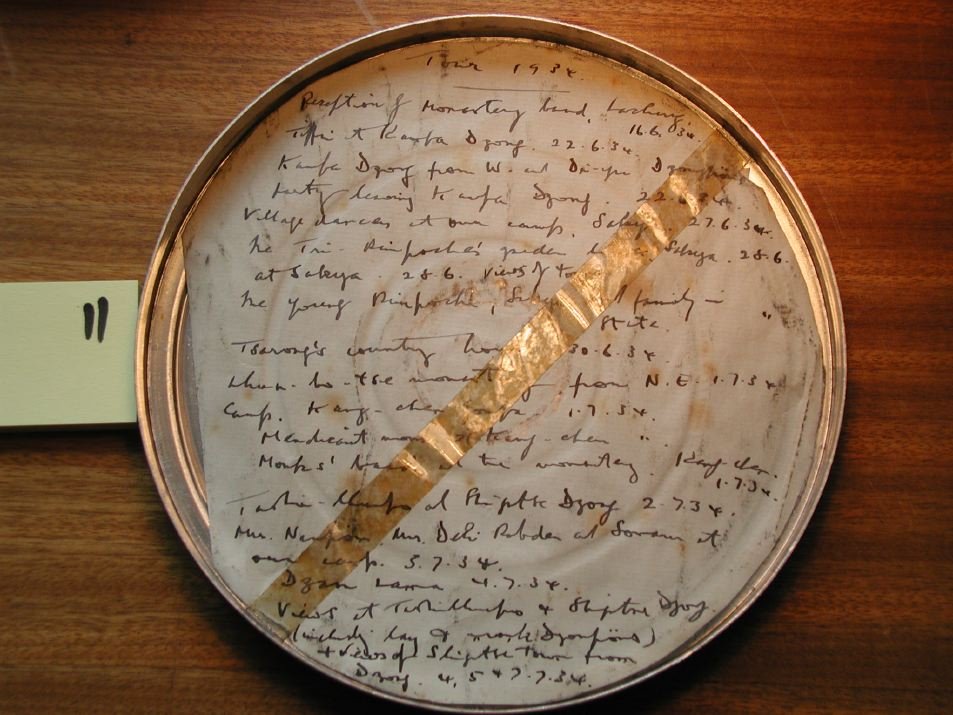 Tour 1934.
Reception & Monastery band, Lachung.
16.6.34.
Tiffin at Kamba Dzong. 22.6.34.
Kamba Dzong from W. and
Party leaving Kamba Dzong. 22.6.34.
Village dances at our camp. Sakya 27.6.34.
The Tri-Rimpoche's garden Sakya. 28.6.
at Sakya. 28.6. Views of
The young Rimpoche, family in "
state.
Tsarong's country 30.6.34.
Lhun-bo-tse from N.E. 1.7.34
Camp. Kang-chen 1.7.34.
Mendicant at Kang-chen ".
Monks' at the monastery. Kang-chen.
1.7.34.
Tashi-lhunpo and Shigatse Dzong 2.7.34.
Mrs. Mrs. Deki Rabden and Sonam at
our camp. 3.7.34.
Dzasa Lama 4.7.34.
Views at Tashilhunpo & Shigatse Dzong.
(including lay & monk Dzongpons)
+ Views of Shigatse Town from
Dzong. 4, 5 & 7.7.34.
11